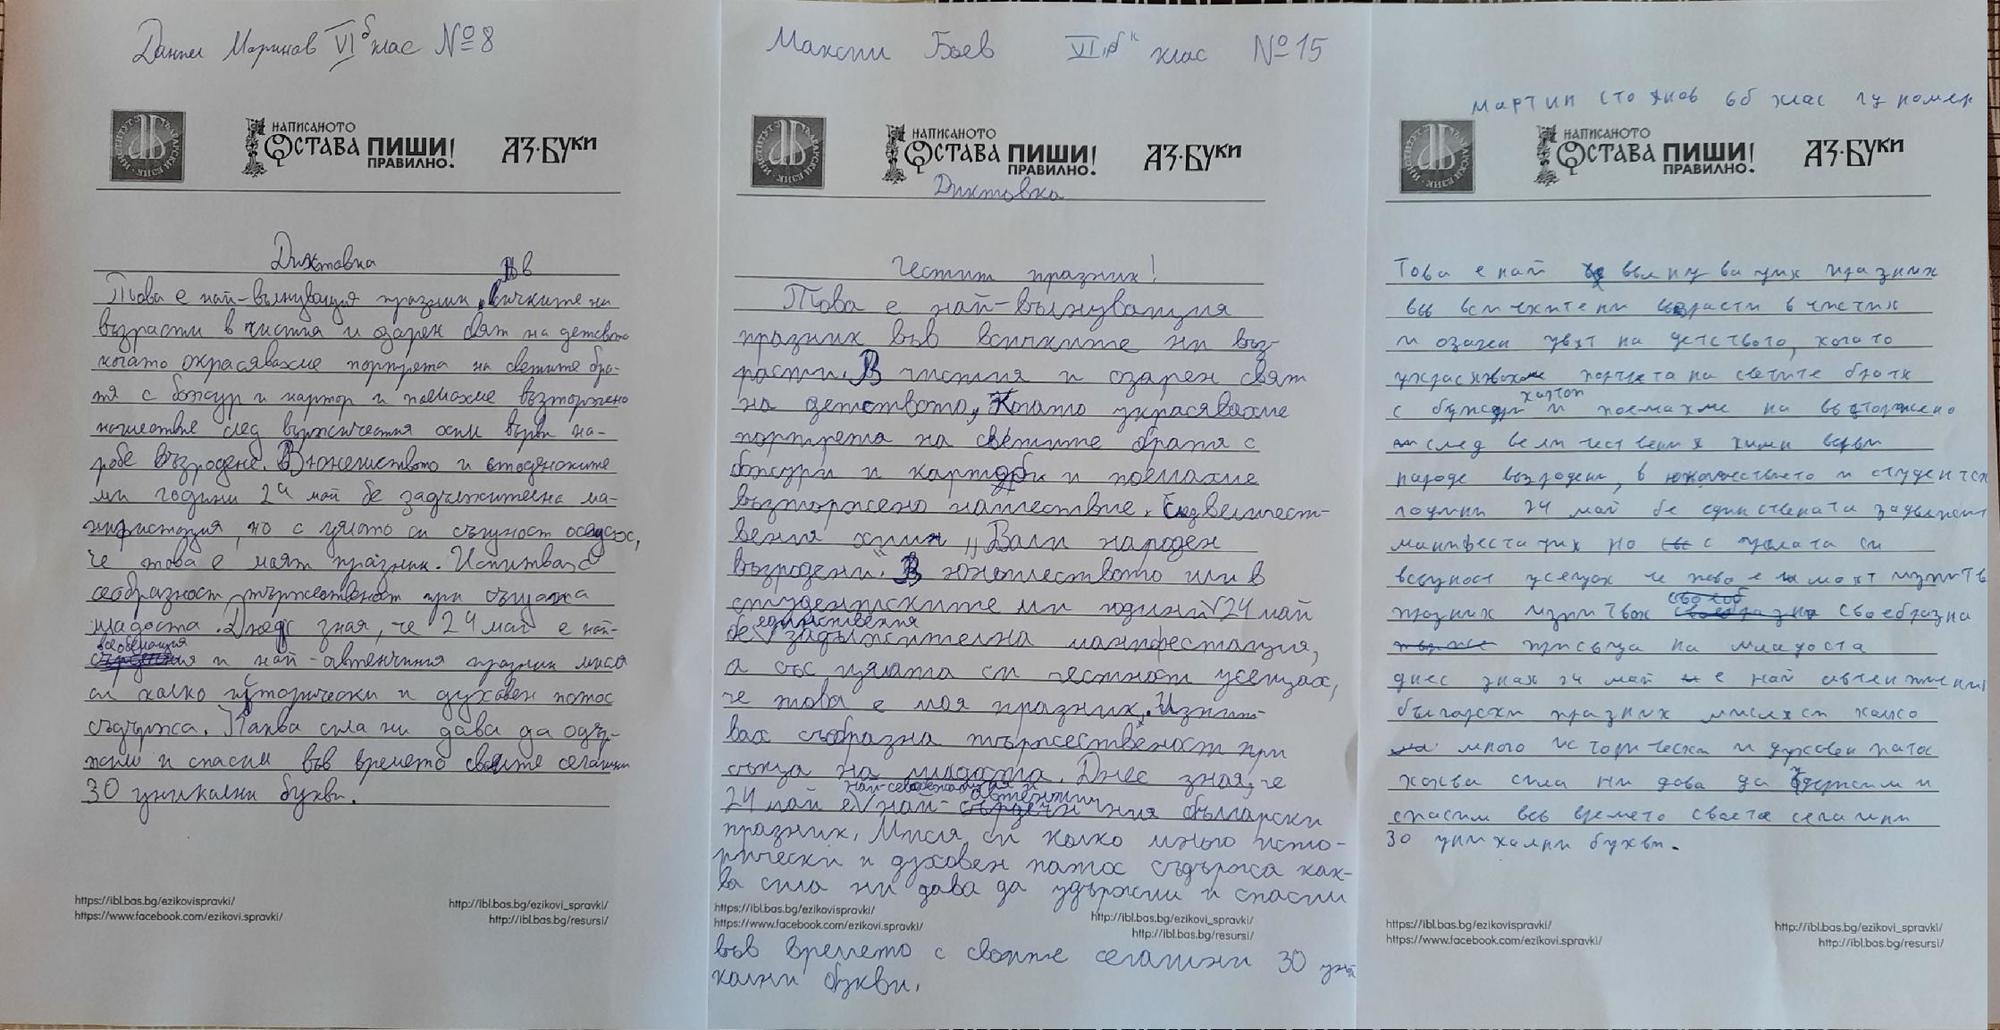 Даниел Маринов VI б клас №8
НАПИСАНОТО
ОСТАВА ПИШИ!
ПРАВИЛНО!
АЗ·БУКИ
Диктовка
Това е най-вълнуващия празник във всичките ни
възрасти в чистия и озарен свят на детство
когато окрасявахме портрета на светите бра-
тя с божур и картор и поемахме възторжено
нашествие след
робе възродене. В юношеството и студенските
ми години 24 май бе задължителна ма-
нифистация, но с цялото си същност осещах,
че това е моят празник. Изпитвах
своебразност, тържественост при
младоста. Днес зная, че 24 май е най-
и най-автенчиния празник мисля
си колко исторически и духовен потос
съдържа. Каква сила ни дава да одър-
жим и спасим във времето своите сегашни
30 уникални букви.
https://ibl.bas.bg/ezikovispravki/
https://www.facebook.com/ezikovi.spravki/
http://ibl.bas.bg/ezikovi_spravki/
http://ibl.bas.bg/resursi/
Максим Боев VI „б“ клас №15
НАПИСАНОТО
ОСТАВА ПИШИ!
ПРАВИЛНО!
АЗ·БУКИ
Диктовка
Честит празник!
Това е най-вълнуващия
празник във всичките ни въз-
расти. В чистия и озарен свят
на детството, когато украсявахме
портрета на светите братя с
божури и картоби и поемахме
възторжено нашествие. След величест-
вения химн „Вали народен
възродени“. В юношеството или в
студентските ми години 24 май
бе единствения задължителна манифестация,
а със цялата си честност усещах,
че това е моя празник. Изпит-
вах съобразна тържественост при
сънца на младоста. Днес зная, че
24 май е най- най- автентичния български
празник. Мисля си колко много исто-
рически и духовен патос съдържа как-
ва сила ни дава да удържим и спасим
https://ibl.bas.bg/ezikovispravki/
https://www.facebook.com/ezikovi.spravki/
http://ibl.bas.bg/ezikovi_spravki/
http://ibl.bas.bg/resursi/
във времето с своите сегашни 30 уни
кални букви.
мартин стоянов 6б клас 14 номер
НАПИСАНОТО
ОСТАВА ПИШИ!
ПРАВИЛНО!
АЗ·БУКИ
Това е най вълнуващия празник
във всичкитени возрасти в чистия
и озарен цвят на детството, когато
украсявохме портрета на светите братя
с божури и картон поемахме на възторжено
след величествения химн върви
народе възродени, в юношеството и студентск
години 24 май бе единствената задължит
манифестация но с цялата си
всъщност усещах че това е моят
празник изпитвох своебразна
присъща на младоста
днес зная 24 май е най автентичния
български празник мисля си колко
много исторически и духовен патос
каква сила ни дава да одържим и
спасим във времето своете сегашни
30 уникални букви.
https://ibl.bas.bg/ezikovispravki/
https://www.facebook.com/ezikovi.spravki/
http://ibl.bas.bg/ezikovi_spravki/
http://ibl.bas.bg/resursi/